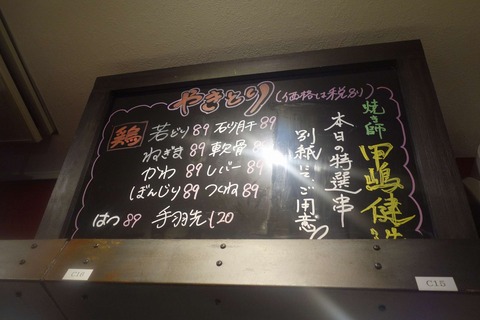 やきとり(価格は税別)
鶏
若どり 89 砂肝 89
ねぎま 89 軟骨 89
かわ 89 レバー 89
ぼんじり 89 つくね 89
はつ 89 手羽先 120
焼き師
田嶋健
本日の特選串
別紙にてご用意
C16
C15